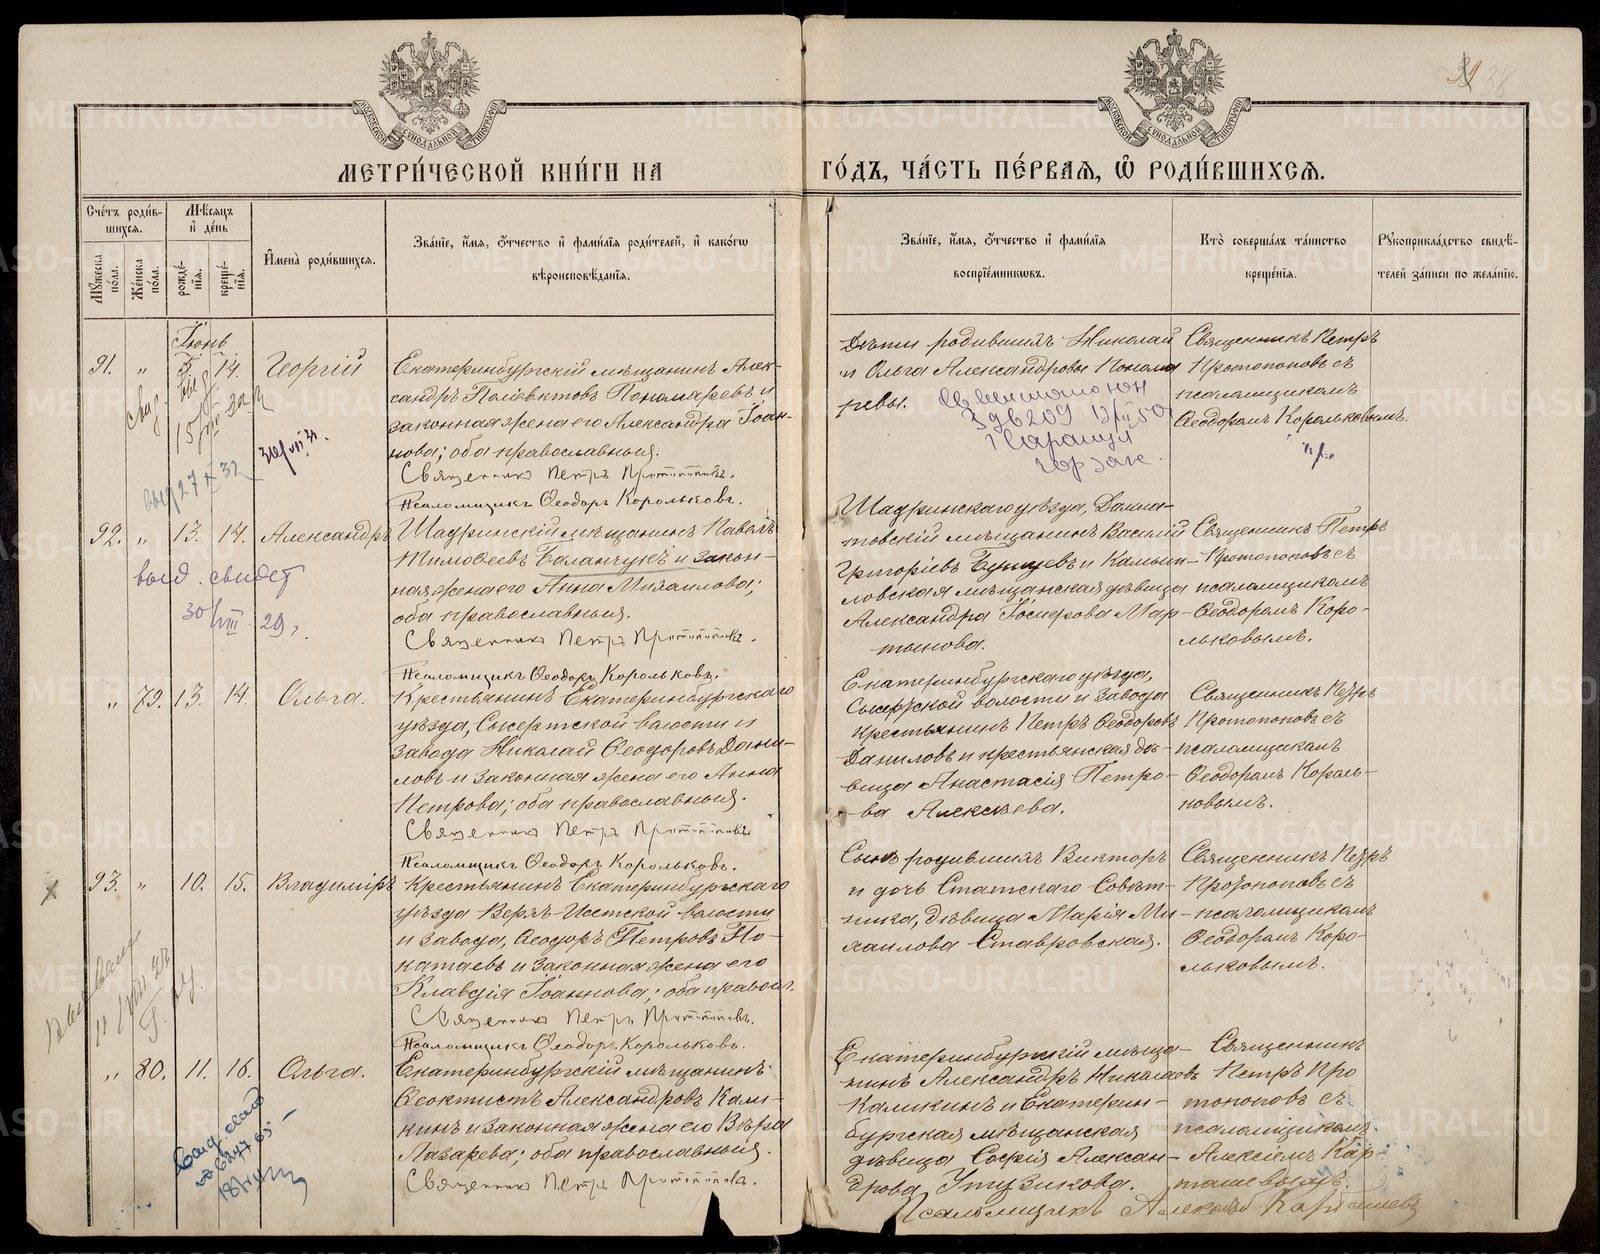 МЕТРИ́ЧЕСКОЙ КНИ́ГИ НА ГО́ДЪ, ЧА́СТЬ ПЕ́РВАЯ, Ѿ РОДИ́ВШИХСѦ.
Счетъ роди́в-
шихсѧ.
Мꙋ́жеска по́ла.
Же́нска по́ла.
Мѣ́сѧцъ и де́нь
рожде́-
нїѧ.
креще́-
нїѧ.
И҆мена̀ роди́вшихсѧ.
Зва́нїе, и҆́мѧ, ѻ҆́тчество и҆ фами́лїѧ роди́телей, и҆ како́гѡ
вѣроисповѣ́данїѧ.
Зва́нїе, и҆́мѧ, ѻ҆́тчество и҆ фами́лїѧ
воспрїе́мникѡвъ.
Кто̀ соверша́лъ та́инство
креще́нїѧ.
Рꙋкоприкла́дство свидѣ́-
телей за́писи по жела́нїю.
Іюнь
91. „ 5. 14. Георгій
Екатеринбургскій мѣщанинъ Алек-
сандръ Поліевктовъ Пономаревъ и
законная жена его Александра Іоан-
нова; оба православныя.
Священникъ Петръ Протопоповъ.
Псаломщикъ Ѳеодоръ Корольковъ.
Дѣти родившихъ Николай
и Ольга Александровы Понома
ревы.
Священникъ Петръ
Протопоповъ съ
псаломщикомъ
Ѳеодоромъ Корольковымъ.
92. „ 13. 14. Александръ
выд. свидет
30/VIII 29 г.
Шадринскій мѣщанинъ Павелъ
Тимоѳеевъ Баланчукъ и закон-
ная жена его Анна Михаилова;
оба православныя.
Священникъ Петръ Протопоповъ.
Псаломщикъ Ѳеодоръ Корольковъ.
Шадринскаго уѣзда, Далма-
товскій мѣщанинъ Василій
Григоріевъ и Камыш-
ловская мѣщанская дѣвица
Александра Іосифова Мар-
тынова.
Священникъ Петръ
Протопоповъ съ
псаломщикомъ
Ѳеодоромъ Коро-
льковымъ.
„ 79. 13. 14. Ольга.
Крестьянинъ Екатеринбургскаго
уѣзда, Сысертской волости и
завода Николай Ѳеодоровъ Дани-
ловъ и законная жена его Анна
Петрова; оба православныя.
Священникъ Петръ Протопоповъ.
Псаломщикъ Ѳеодоръ Корольковъ.
Екатеринбургскаго уѣзда,
Сысертской волости и завода
крестьянинъ Петръ Ѳеодоровъ
Даниловъ и крестьянская дѣ-
вица Анастасія Петро-
ва Алексѣева.
Священникъ Петръ
Протопоповъ съ
псаломщикомъ
Ѳеодоромъ Король-
ковымъ.
93. „ 10. 15. Владиміръ
Крестьянинъ Екатеринбургскаго
уѣзда Верхъ-Исетской волости
и завода, Ѳеодоръ Петровъ По-
катаевъ и законная жена его
Клавдія Іоаннова; оба правосл.
Священникъ Петръ Протопоповъ.
Псаломщикъ Ѳеодоръ Корольковъ.
Сынъ родившихъ Викторъ
и дочь Статскаго Совѣт-
ника, дѣвица Марія Ми-
хаилова Ставровская.
Священникъ Петръ
Протопоповъ съ
псаломщикомъ
Ѳеодоромъ Коро-
льковымъ.
„ 80. 11. 16. Ольга.
Екатеринбургскій мѣщанинъ
Ѳеоктистъ Александровъ Кали-
кинъ и законная жена его Вѣра
Лазарева; оба православныя.
Священникъ Петръ Протопоповъ.
Екатеринбургскій мѣща-
нинъ Александръ Николаевъ
Каликинъ и Екатерин-
бургская мѣщанская
дѣвица Софія Алексан-
дрова Утузикова.
Священникъ
Петръ Про
топоповъ съ
псаломщикомъ
Алексіемъ Кар-
ташевымъ.
Псаломщикъ Алексѣй Карташевъ
METRIKI.GASO-URAL.RU